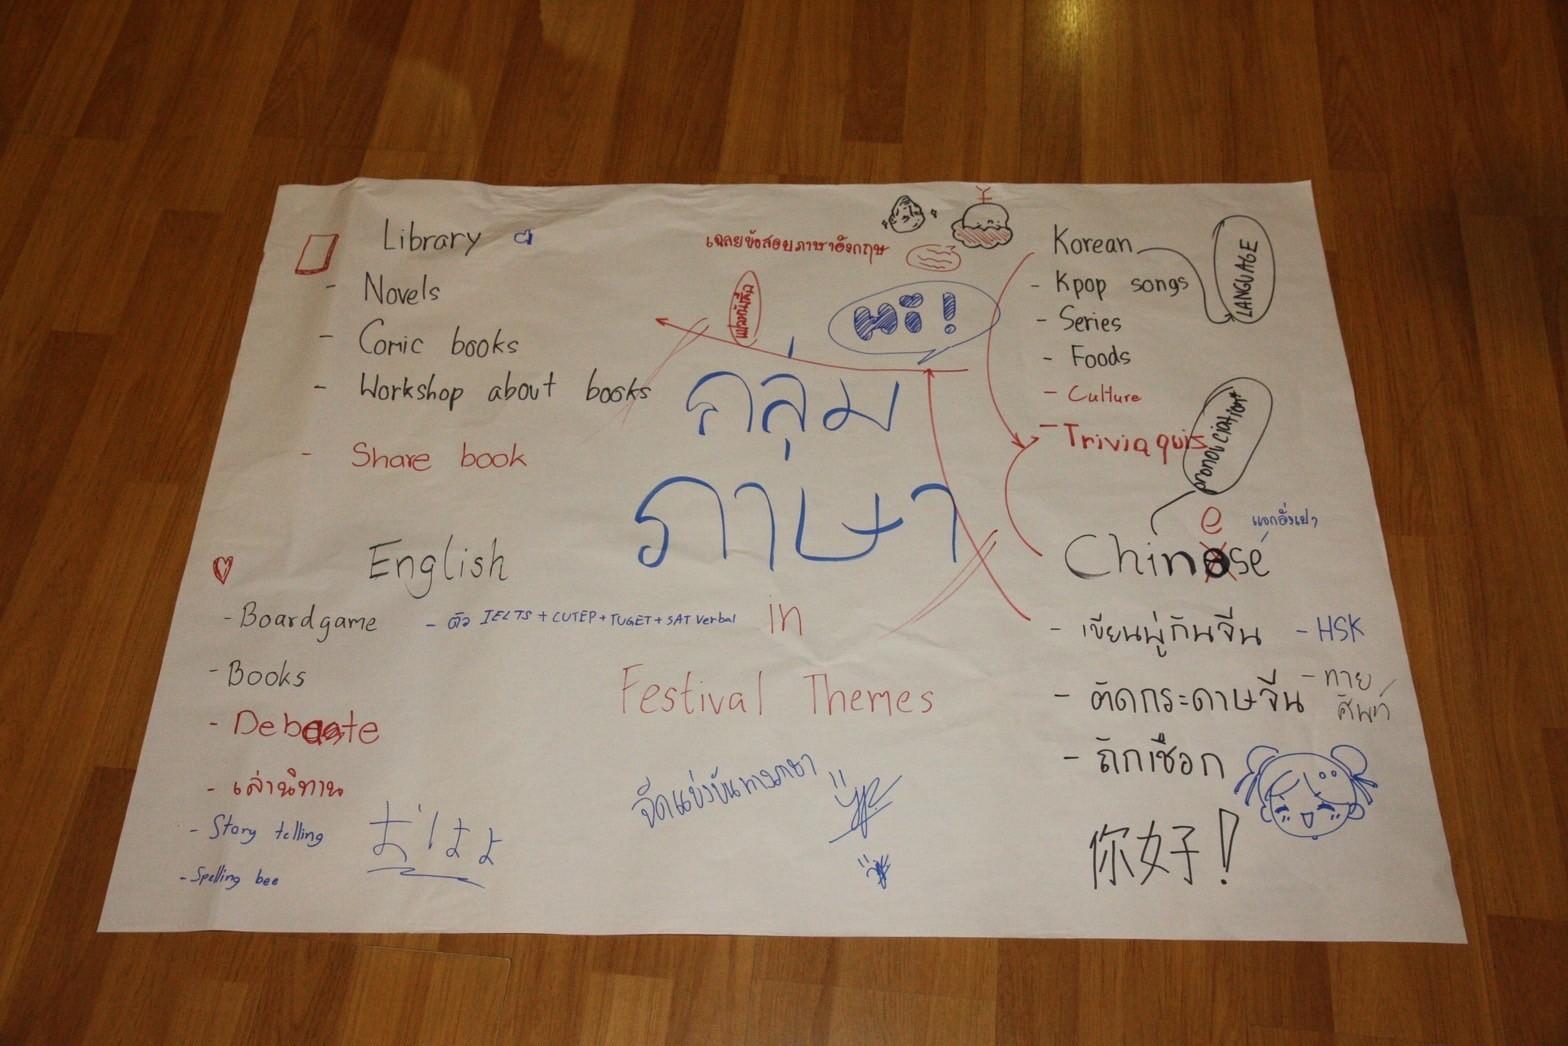 Library
- Novels
- Comic books
- Workshop about books
- Share book
เฉลยข้อสอบภาษาอังกฤษ
Hi!
กลุ่ม
ภาษา
in
Festival Themes
จัดแข่งขันทางภาษา
Korean
LANGUAGE
- Kpop songs
- Series
- Foods
- Culture
- Trivia quis
English
- Boardgame
- ติว IELTS + CUTEP + TUGET + SAT Verbal
- Books
- Debate
- เล่านิทาน
- Story telling
- Spelling bee
おはよ
e
แจกอั่งเปา
Chinese
- เขียนพู่กันจีน
- HSK
- ตัดกระดาษจีน
- ทาย
ศัพท์
- ถักเชือก
你好!